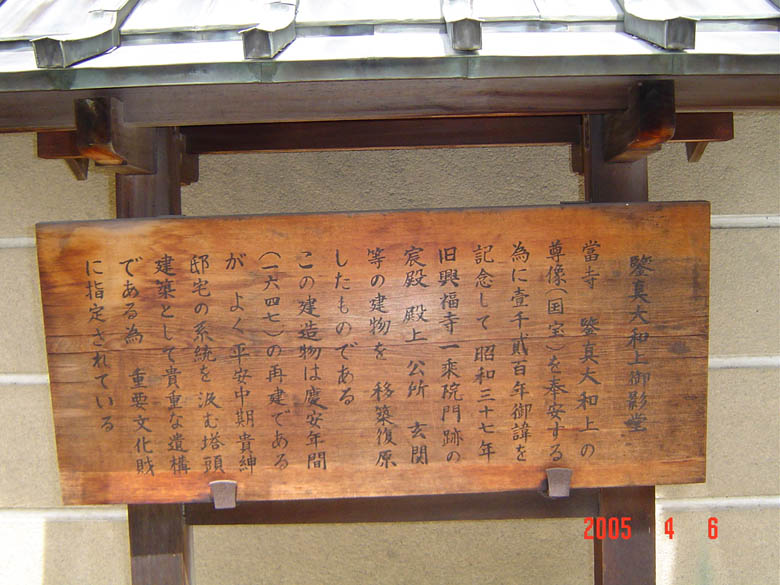 鑒真大和上御影堂
當寺 鑒真大和上の
尊像(国宝)を奉安する
為に壹千貳百年御諱を
記念して 昭和三十七年
旧興福寺一乗院門跡の
宸殿 殿上 公所 玄関
等の建物を 移築復原
したものである
この建造物は慶安年間
(一六四七)の再建である
が よく平安中期貴紳
邸宅の系統を汲む塔頭
建築として貴重な遺構
である為 重要文化財
に指定されている
2005 4 6